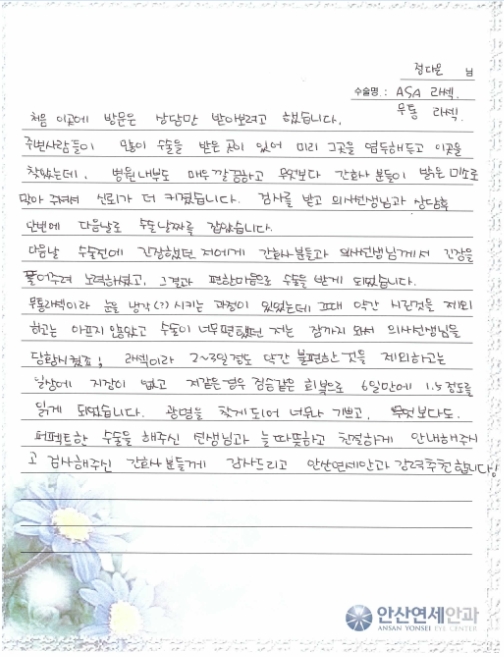 정다운 님
수술명 : ASA 라섹.
무통 라섹.
처음 이곳에 방문은 상담만 받아보려고 했습니다.
주변사람들이 많이 수술을 받은 곳이 있어 미리 그곳을 염두해두고 이곳을
찾았는데, 병원내부도 매우 깔끔하고 무엇보다 간호사 분들이 밝은 미소로
맞아 주셔서 신뢰가 더 커졌습니다. 검사를 받고 의사선생님과 상담후
단번에 다음날로 수술날짜를 잡았습니다.
다음날 수술전에 긴장했던 저에게 간호사분들과 의사선생님께서 긴장을
풀어주려 노력하셨고, 그결과 편한마음으로 수술을 받게 되었습니다.
무통라섹이라 눈을 냉각(??)시키는 과정이 있었는데 그때 약간 시린것을 제외
하고는 아프지 않았고 수술이 너무편했던 저는 잠까지 와서 의사선생님을
당황시켰죠! 라섹이라 2~3일정도 약간 불편한것을 제외하고는
일상에 지장이 없고 저같은경우 짐승같은 회복으로 6일만에 1.5정도를
읽게 되었습니다. 광명을 찾게되어 너무나 기쁘고, 무엇보다도.
퍼펙트한 수술을 해주신 선생님과 늘 따뜻하고 친절하게 안내해주시
고 검사해주신 간호사 분들께 감사드리고 안산연세안과 강력추천합니다!
안산연세안과
ANSAN YONSEI EYE CENTER